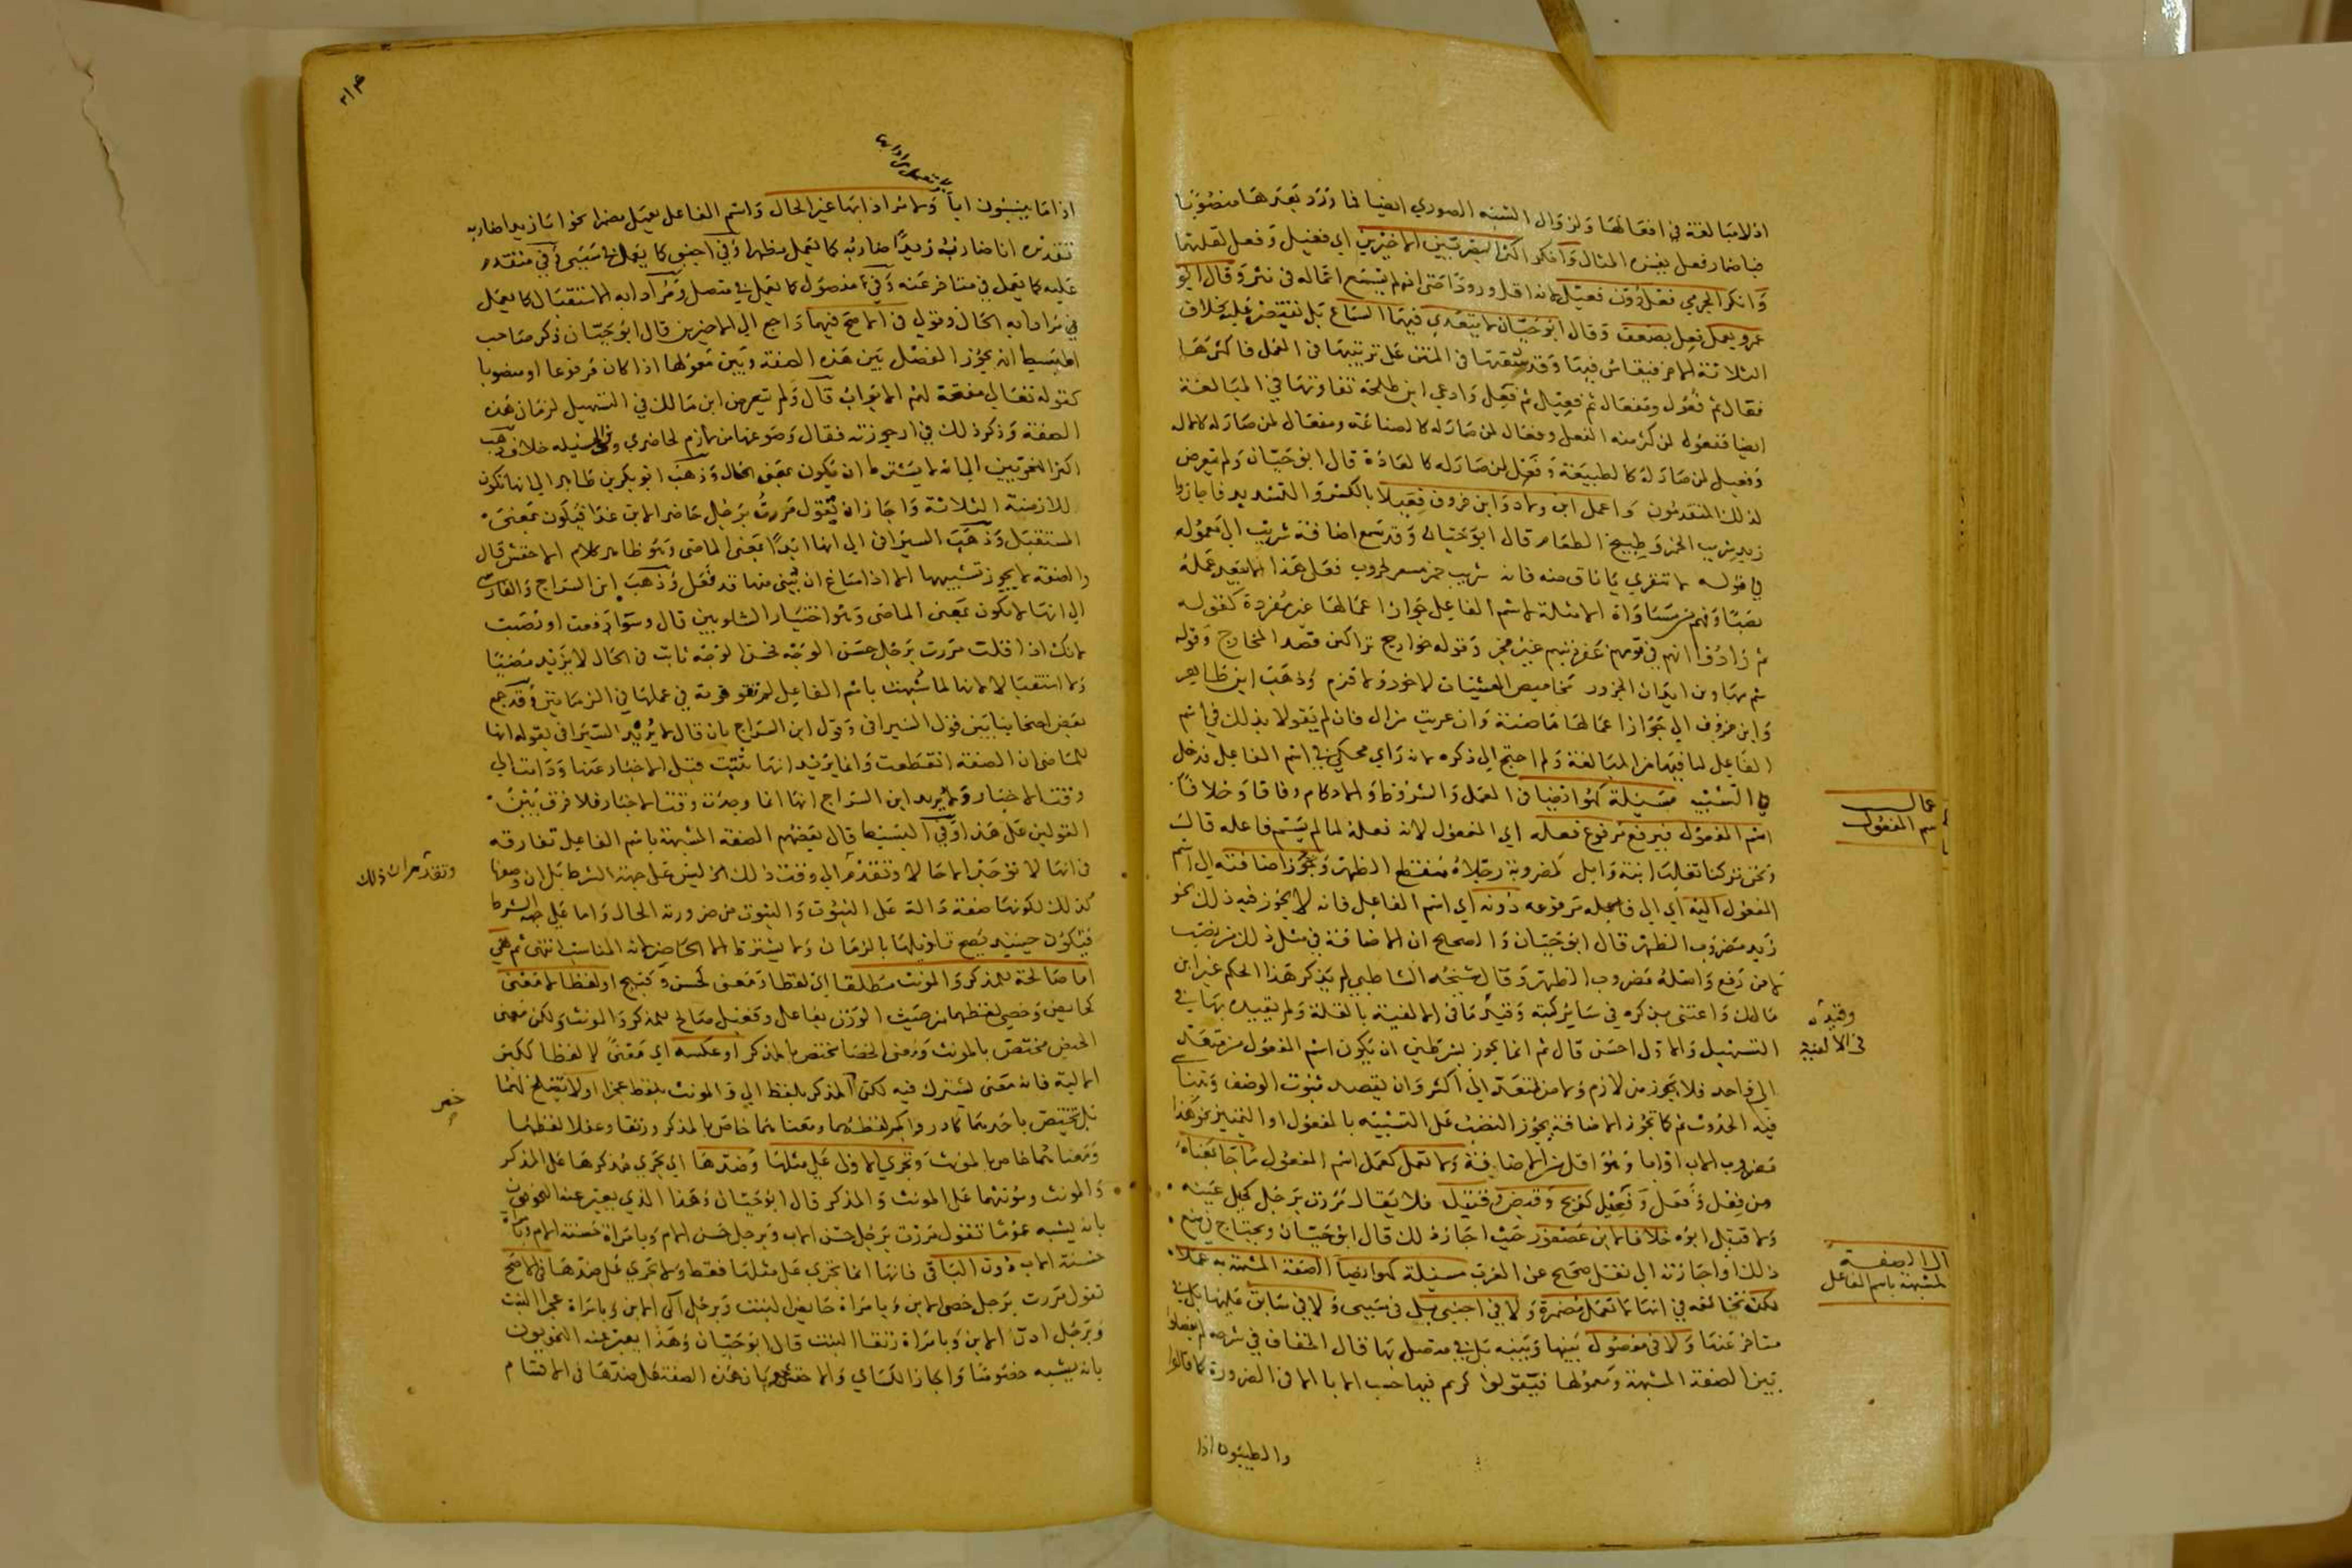 اذ لا مبالغة في افعالها ولزوال الشبه الصوري ايضا فما ورد بعدها منصوبا
فباضمار فعل يفسره المثال وانكر اكثر البصريين الاخيرين اي فعيل وفعل لقلتهما
وانكر الجرمي فعل دون فعيل لانه اقل ورودا حتى انه لم يسمع اعماله في نثر وقال ابو
عمرو يعمل فعل بضعف وقال ابو حيان لا يتعدى فيهما السماع بل نقتصر عليه بخلاف
الثلاثة الاخر فيقاس فيها وقد سقتها في المتن على ترتيبها في العمل فاكثرها
فعال ثم فعول ومفعال ثم فعيل ثم فعل وادعى ابن طلحة تفاوتها في المبالغة
ايضا ففعول لمن كثر منه الفعل وفعال لمن صار له كالصناعة ومفعال لمن صار له كالآلة
وفعيل لمن صار له كالطبيعة وفعل لمن صار له كالعادة قال ابو حيان ولم يتعرض
لذلك المتقدمون واعمل ابن ولاد وابن خروف فعيلا بالكسر والتشديد فاجازا
زيد شريب الخمر وطبيخ الطعام قال ابو حيان وقد سمع اضافة شريب الى معموله
في قوله لا تنفري يا ناق منه فانه شريب خمر مسعر لحروب فعلى هذا لا يبعد عمله
نصبا وفهم من مساواة الامثلة لاسم الفاعل جواز اعمالها غير مفردة كقوله
ثم زادوا انهم في قومهم غفر ذنبهم غير فخر وقوله خوارج تراكين قصد المخارج وقوله
شم مهاوين ابدان الجزور مخاميص العشيات لا خور ولا قزم وذهب ابن طاهر
وابن خروف الى جواز اعمالها ماضية وان عريت من ال فان لم يقولا بذلك في اسم
الفاعل لما فيها من المبالغة ولم احتج الى ذكره لانه راي محكي في اسم الفاعل فدخل
في التشبيه مسئلة كهو ايضا في العمل والشروط والاحكام وفاقا وخلافا
اسم المفعول فيرفع مرفوع فعله اي المفعول لانه فعله لما لم يسم فاعله قال
ونحن تركنا تغلب ابنة وائل كمضروبة رجلاه منقطع الظهر وتجوز اضافته الى اسم
المفعول اليه اي الى فاعله مرفوعه دونه اي اسم الفاعل فانه لا يجوز فيه ذلك نحو
زيد مضروب الظهر قال ابو حيان والصحيح ان الاضافة في مثل ذلك من نصب
لا من رفع واصله مضروب الظهر وقال شيخه الشاطبي لم يذكر هذا الحكم غير ابن
مالك واعتنى بذكره في سائر كتبه وقيد ما في الالفية بالقلة ولم يقيده بها في
التسهيل والاول احسن قال ثم انما يجوز بشرطين ان يكون اسم المفعول من متعد
الى واحد فلا يجوز من لازم ولا من متعد الى اكثر وان يقصد ثبوت الوصف وتناسي
فيه الحدوث ثم كما تجوز الاضافة يجوز النصب على التشبيه بالمفعول او التمييز نحو هذا
مضروب الاب او ابا وهو اقل من الاضافة ولا تعمل كعمل اسم المفعول ما جا بمعناه
من فعل وفعل وفعيل كذبح وقبض وقتيل فلا يقال مررت برجل كحيل عينه
ولا قتيل ابوه خلافا لابن عصفور حيث اجاز ذلك قال ابو حيان ويحتاج في منع
ذلك او اجازته الى نقل صحيح عن العرب مسئلة كهو ايضا الصفة المشبهة به عملا
لكن تخالفه في انها لا تعمل مضمرة ولا في اجنبي بل في سببي ولا في سابق عليها بل في
متاخر عنها ولا في مفصول بينها وبينه بل في متصل بها قال الخفاف في شرحه لم يفصلوا
بين الصفة المشبهة ومعمولها فيقولوا كريم فيها حسب الابا الا في الضرورة كما قالوا
والطيبون اذا
اسم المفعول
وقيده
في الالفية
الصفة
المشبهة باسم الفاعل
٣١٤
اذا ما ينسبون ابا ولا مرادا بها غير الحال واسم الفاعل يعمل مضمرا نحو انا زيدا ضاربه
تقديره انا ضارب زيدا ضاربه كما يعمل مظهرا وفي اجنبي كما يعمل في سببي وفي متقدم
عليه كما يعمل في متاخر عنه وفي مفصول كما يعمل في متصل ومرادا به الاستقبال كما يعمل
في مرادا به الحال وقولي في الاصح فيهما راجع الى الاخيرين قال ابو حيان ذكر صاحب
البسيط انه يجوز الفصل بين هذه الصفة وبين معمولها اذا كان مرفوعا او منصوبا
كقوله تعالى مفتحة لهم الابواب قال ولم يتعرض ابن مالك في التسهيل لزمان هذه
الصفة وذكر ذلك في ارجوزته فقال وصوغها من لازم لحاضر وفي المسئلة خلاف ذهب
اكثر النحويين الى انه لا يشترط ان يكون بمعنى الحال وذهب ابو بكر بن طاهر الى انها تكون
للازمنة الثلاثة واجاز ان تقول مررت برجل حاضر الابن غدا فيكون بمعنى
المستقبل وذهب السيرافي الى انها ابدا بمعنى الماضي وهو ظاهر كلام الاخفش قال
والصفة لا يجوز تشبيهها الا اذا ساغ ان يبنى منها قد فعل وذهب ابن السراج والفارسي
الى انها لا تكون بمعنى الماضي وهو اختيار الشلوبين قال وسوا رفعت او نصبت
لانك اذا قلت مررت برجل حسن الوجه فحسن الوجه ثابت في الحال لا يريد مضيا
ولا استقبالا لانها لما شبهت باسم الفاعل لم تقو قوته في عملها في الزمانين وقد جمع
بعض اصحابنا بين قول السيرافي وقول ابن السراج بان قال لا يريد السيرافي بقوله انها
للماضي ان الصفة انقطعت وانما يريد انها ثبتت قبل الاخبار عنها ودامت الى
وقت الاخبار ولا يريد ابن السراج انها انما وجدت وقت الاخبار فلا فرق بين
القولين على هذا وفي البسيط قال بعضهم الصفة المشبهة باسم الفاعل تفارقه
في انها لا توجد الا حالا وتقدم الى وقت ذلك ليس على جهة الشرط بل ان وضعها
كذلك لكونها صفة دالة على الثبوت والثبوت من ضرورته الحال واما على جهة الشرط
فيكون حينئذ يصح تاويلها بالزمان ولا يشترط الا الحاضر لانه المناسب انتهى ثم هي
اما صالحة للمذكر والمونث مطلقا اي لفظا ومعنى كحسن وقبيح او لفظا لا معنى
كحائض وخصي لفظهما من حيث الوزن بفاعل وفعيل صالح للمذكر والمونث ولكن معنى
الحيض مختص بالمونث ومعنى الخصا مختص بالمذكر او عكسه اي معنى لا لفظا ككبر
الالية فانه معنى يشترك فيه لكن المذكر بلفظ الي والمونث بلفظ عجزا او لا تصلح لهما
بل تختص باحدهما كآدر واكمر لفظهما ومعناهما خاص بالمذكر ورتقا وعفلا لفظهما
ومعناهما خاص بالمونث وتجري الاولى على مثلها وضدها اي يجري مذكرها على المذكر
والمونث ومونثها على المونث والمذكر قال ابو حيان وهذا الذي يعبر عنه النحويون
بانه يشبه عموما تقول مررت برجل حسن الاب وبرجل حسن الام وبامراة حسنة الام وبامراة
حسنة الاب دون الباقي فانها انما تجري على مثلها فقط ولا تجري على ضدها في الاصح
تقول مررت برجل خصي الابن وبامراة حائض البنت وبرجل آلى الابن وبامراة عجزا البنت
وبرجل آدر الابن وبامراة رتقا البنت قال ابو حيان وهذا يعبر عنه النحويون
بانه يشبه خصوصا واجاز الكسائي والاخفش جريان هذه الصفة على ضدها في الاقسام
وتقدم